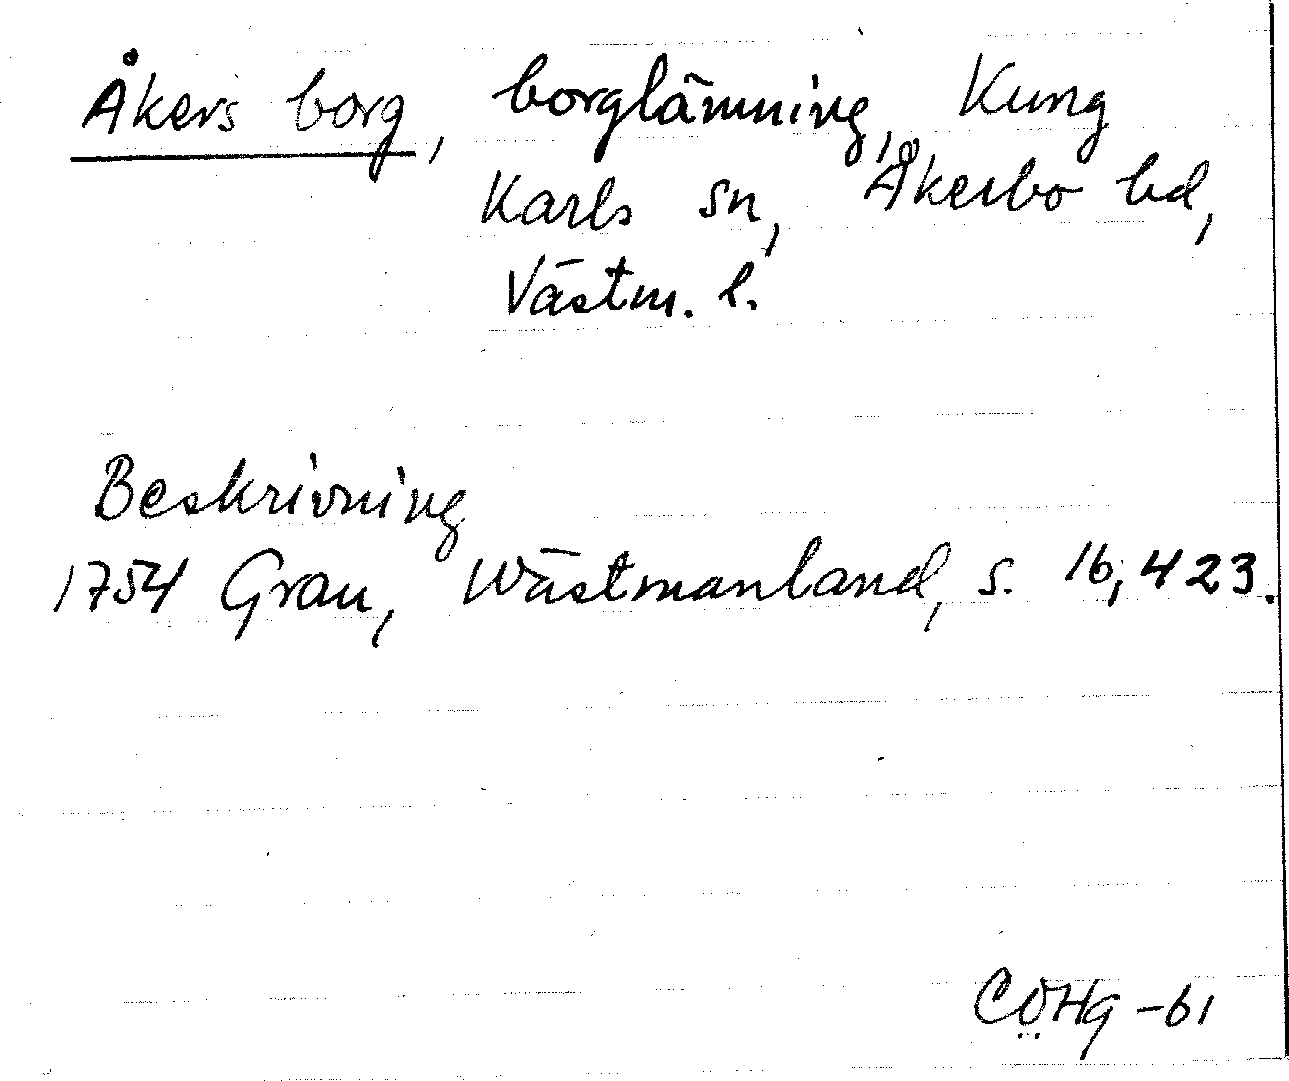 Åkers borg, borglämning, Kung
Karls sn, Åkerbo hd,
Västm. l.
Beskrivning
1754 Grau, Wästmanland, s. 16, 423.
CÖHg -61